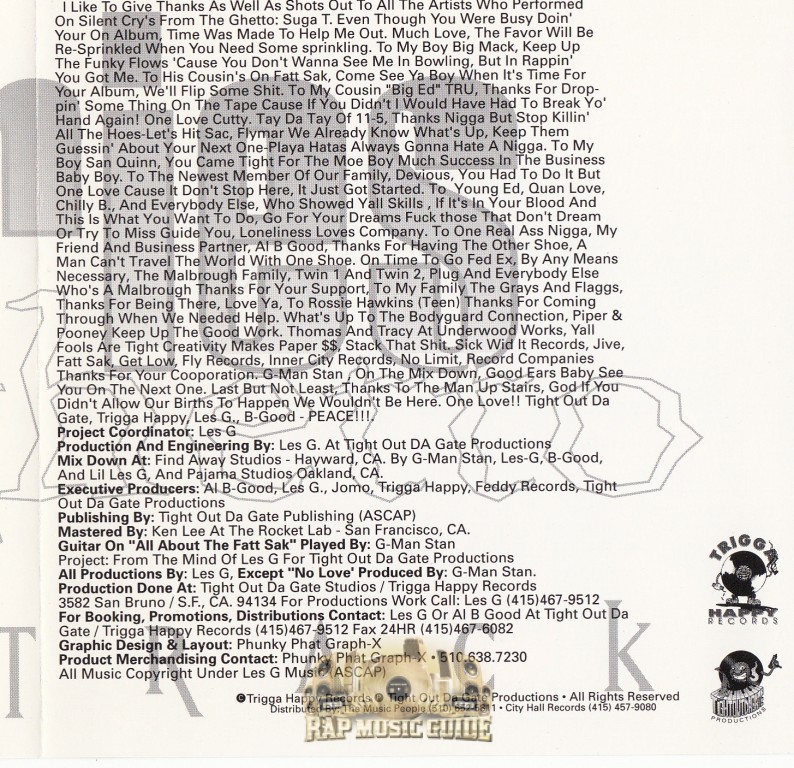 I Like To Give Thanks As Well As Shots Out To All The Artists Who Performed
On Silent Cry's From The Ghetto: Suga T. Even Though You Were Busy Doin'
Your On Album, Time Was Made To Help Me Out. Much Love, The Favor Will Be
Re-Sprinkled When You Need Some sprinkling. To My Boy Big Mack, Keep Up
The Funky Flows 'Cause You Don't Wanna See Me In Bowling, But In Rappin'
You Got Me. To His Cousin's On Fatt Sak, Come See Ya Boy When It's Time For
Your Album, We'll Flip Some Shit. To My Cousin "Big Ed" TRU, Thanks For Drop-
pin' Some Thing On The Tape Cause If You Didn't I Would Have Had To Break Yo'
Hand Again! One Love Cutty. Tay Da Tay Of 11-5, Thanks Nigga But Stop Killin'
All The Hoes-Let's Hit Sac, Flymar We Already Know What's Up, Keep Them
Guessin' About Your Next One-Playa Hatas Always Gonna Hate A Nigga. To My
Boy San Quinn, You Came Tight For The Moe Boy Much Success In The Business
Baby Boy. To The Newest Member Of Our Family, Devious, You Had To Do It But
One Love Cause It Don't Stop Here, It Just Got Started. To Young Ed, Quan Love,
Chilly B., And Everybody Else, Who Showed Yall Skills , If It's In Your Blood And
This Is What You Want To Do, Go For Your Dreams Fuck those That Don't Dream
Or Try To Miss Guide You, Loneliness Loves Company. To One Real Ass Nigga, My
Friend And Business Partner, Al B Good, Thanks For Having The Other Shoe, A
Man Can't Travel The World With One Shoe. On Time To Go Fed Ex, By Any Means
Necessary, The Malbrough Family, Twin 1 And Twin 2, Plug And Everybody Else
Who's A Malbrough Thanks For Your Support, To My Family The Grays And Flaggs,
Thanks For Being There, Love Ya, To Rossie Hawkins (Teen) Thanks For Coming
Through When We Needed Help. What's Up To The Bodyguard Connection, Piper &
Pooney Keep Up The Good Work. Thomas And Tracy At Underwood Works, Yall
Fools Are Tight Creativity Makes Paper $$, Stack That Shit. Sick Wid It Records, Jive,
Fatt Sak, Get Low, Fly Records, Inner City Records, No Limit, Record Companies
Thanks For Your Cooporation. G-Man Stan , On The Mix Down, Good Ears Baby See
You On The Next One. Last But Not Least, Thanks To The Man Up Stairs, God If You
Didn't Allow Our Births To Happen We Wouldn't Be Here. One Love!! Tight Out Da
Gate, Trigga Happy, Les G., B-Good - PEACE!!!.
Project Coordinator: Les G
Production And Engineering By: Les G. At Tight Out DA Gate Productions
Mix Down At: Find Away Studios - Hayward, CA. By G-Man Stan, Les-G, B-Good,
And Lil Les G, And Pajama Studios Oakland, CA.
Executive Producers: Al B-Good, Les G., Jomo, Trigga Happy, Feddy Records, Tight
Out Da Gate Productions
Publishing By: Tight Out Da Gate Publishing (ASCAP)
Mastered By: Ken Lee At The Rocket Lab - San Francisco, CA.
Guitar On "All About The Fatt Sak" Played By: G-Man Stan
Project: From The Mind Of Les G For Tight Out Da Gate Productions
All Productions By: Les G, Except "No Love' Produced By: G-Man Stan.
Production Done At: Tight Out Da Gate Studios / Trigga Happy Records
3582 San Bruno / S.F., CA. 94134 For Productions Work Call: Les G (415)467-9512
For Booking, Promotions, Distributions Contact: Les G Or Al B Good At Tight Out Da
Gate / Trigga Happy Records (415)467-9512 Fax 24HR (415)467-6082
Graphic Design & Layout: Phunky Phat Graph-X
Product Merchandising Contact: Phunky Phat Graph-X • 510.638.7230
All Music Copyright Under Les G Music (ASCAP)
©Trigga Happy Records © Tight Out Da Gate Productions • All Rights Reserved
Distributed By: The Music People • City Hall Records (415) 457-9080
RAP MUSIC GUIDE
TRIGGA
HAPPY
RECORDS
PRODUCTIONS